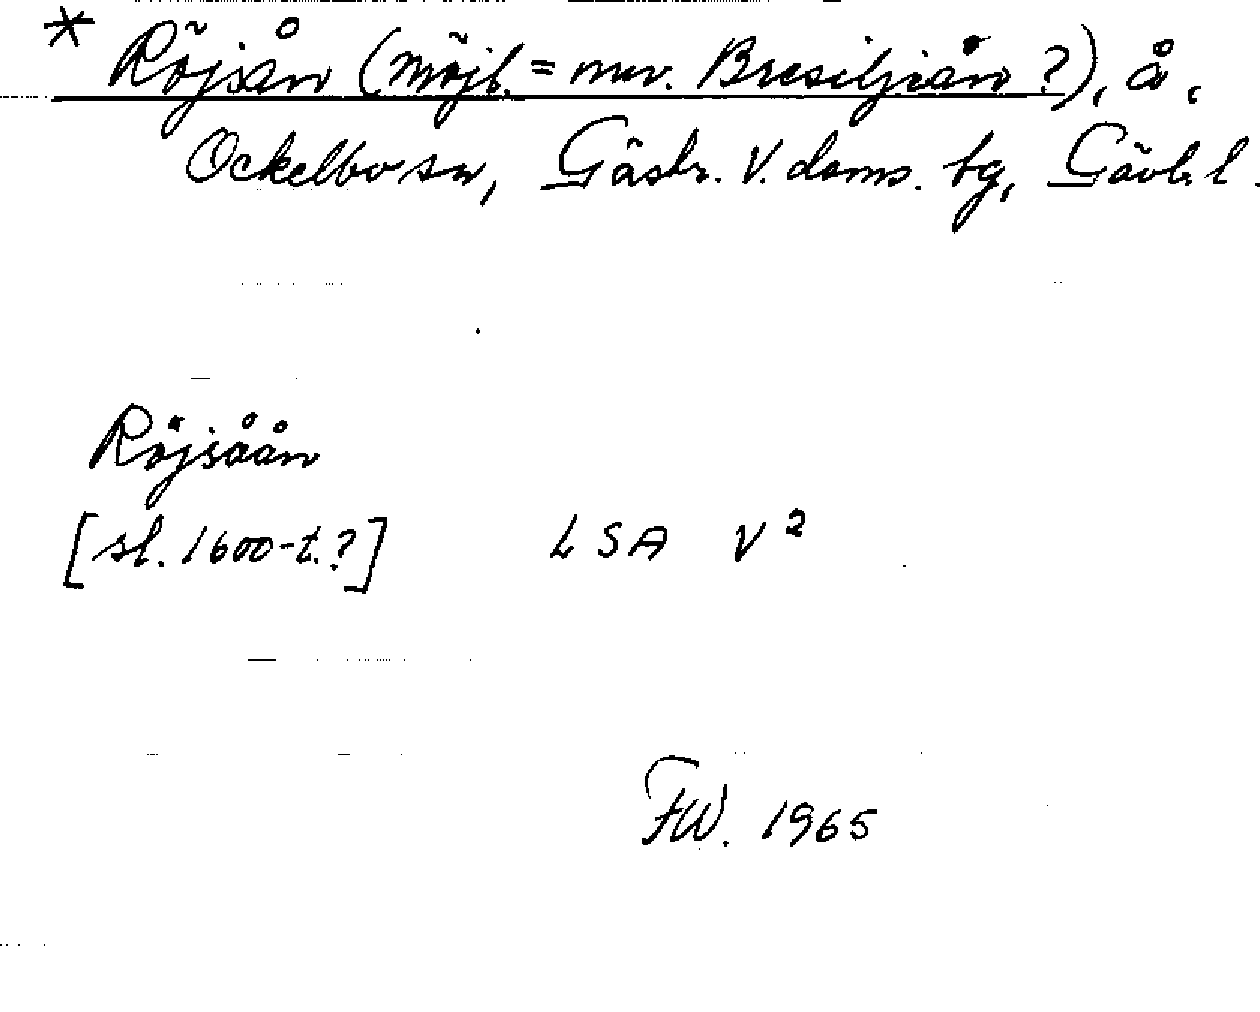 * Röjsån (möjl. = nuv. Bresiljeån ?), å,
Ockelbo sn, Gästr. V. doms. tg, Gävl. l.
Röjsåån
[sl. 1600-t.?] LSA V 2
FW. 1965